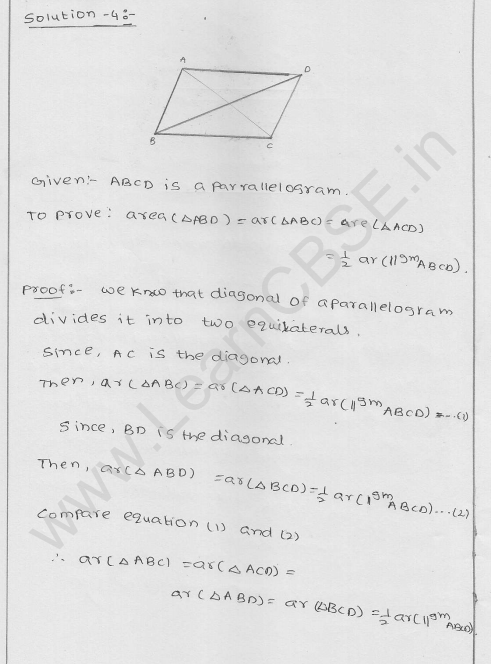 Solution -4:-
A
D
B
C
Given:- ABCD is a parrallelogram.
To prove: area(△ABD) = ar(△ABC) = are(△ACD)
= 1/2 ar(||gm ABCD).
Proof:- we know that diagonal of a parallelogram
divides it into two equilaterals.
Since, AC is the diagonal.
Then, ar(△ABC) = ar(△ACD) = 1/2 ar(||gm ABCD) --- (1)
Since, BD is the diagonal.
Then, ar(△ABD) = ar(△BCD) = 1/2 ar(||gm ABCD) ... (2)
Compare equation (1) and (2)
∴ ar(△ABC) = ar(△ACD) =
ar(△ABD) = ar(△BCD) = 1/2 ar(||gm ABCD).
www.LearnCBSE.in